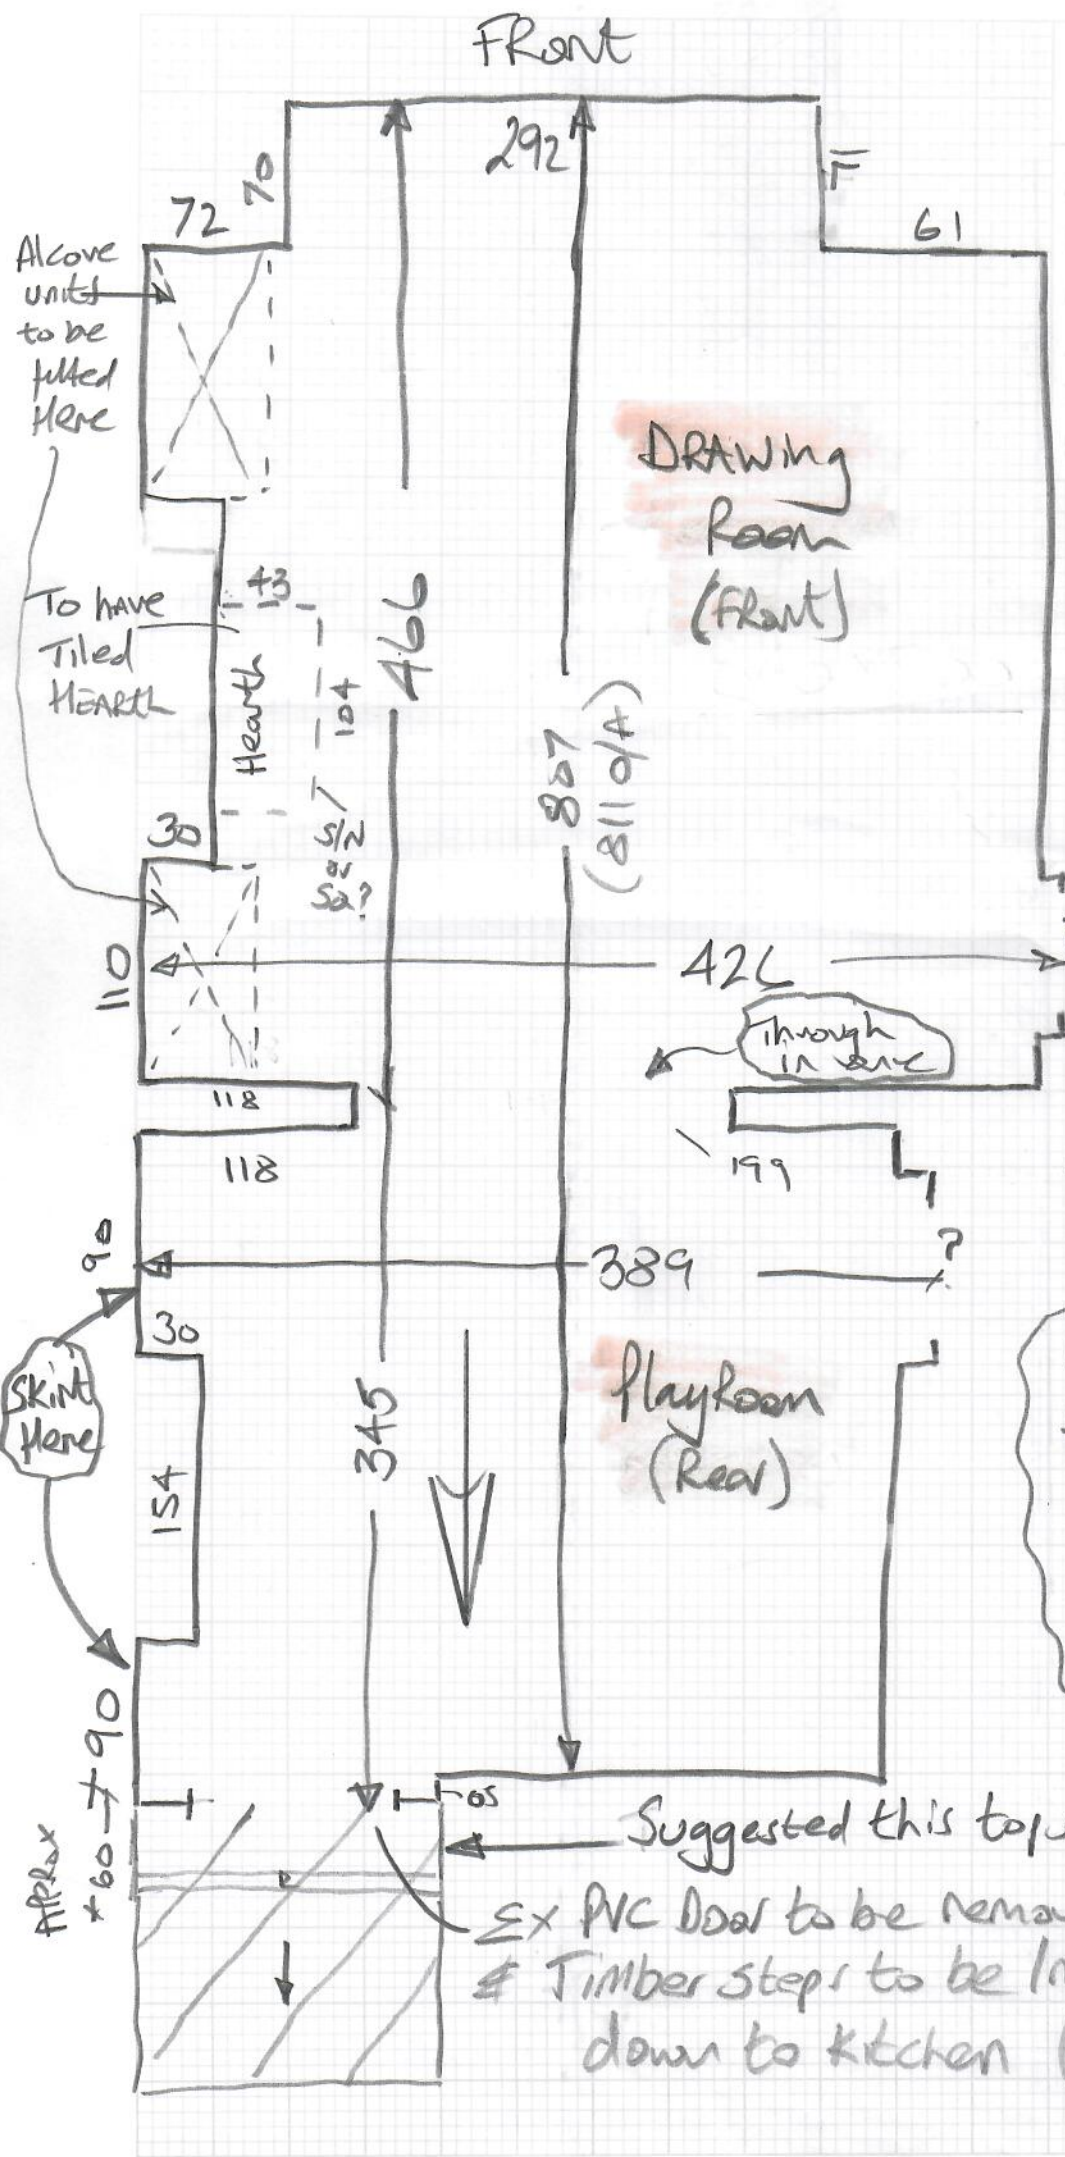 FRont
292
70
71
72
61
Alcove
units
to be
fitted
Here
DRAWing
Room
(FRont)
To have
Tiled
HEARth
43
Hearth
104
466
807
(811 o/A)
S/N
or
Sq?
30
110
426
Through
in one
118
118
199
90
389
?
30
Skirt
Here
PlayRoom
(Rear)
345
154
90
60
APPRox
os
Suggested this top
Ex PVC Door to be remov
& Timber steps to be In
down to Kitchen (